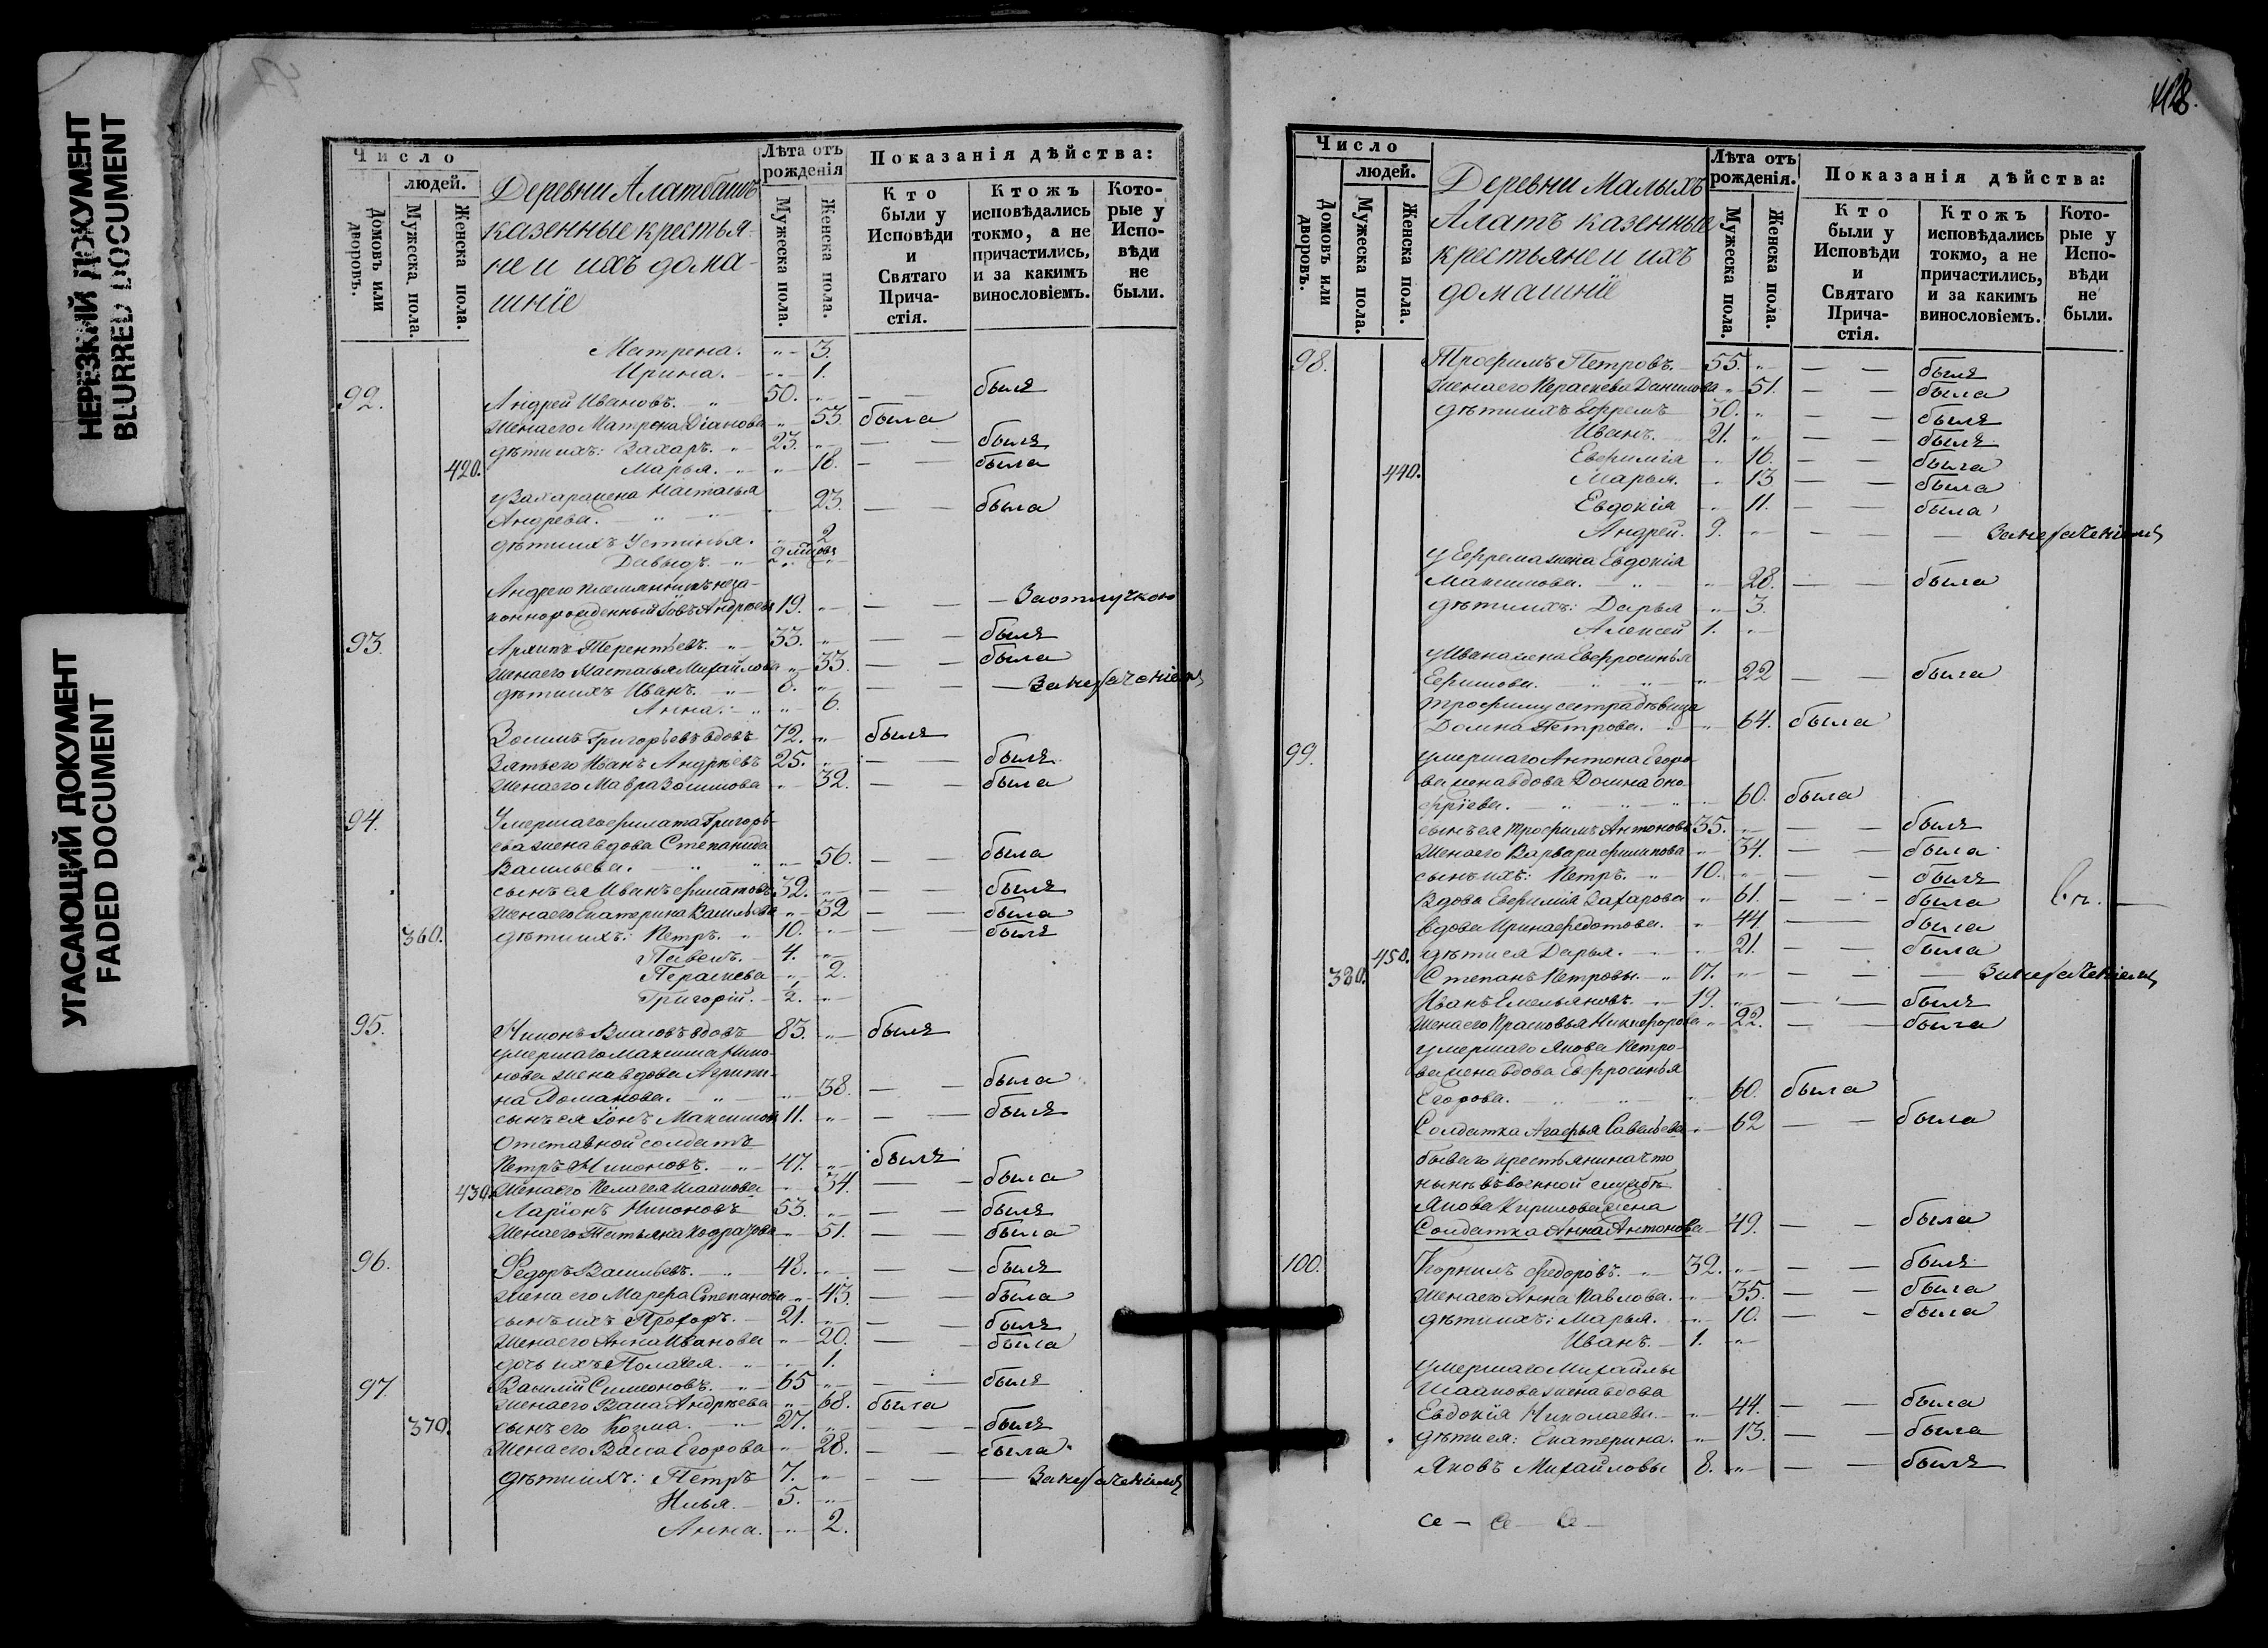 НЕРЕЗКИЙ ДОКУМЕНТ
BLURRED DOCUMENT
УГАСАЮЩИЙ ДОКУМЕНТ
FADED DOCUMENT
Число
людей.
Домовъ или дворовъ.
Мужеска пола.
Женска пола.
Деревни Алатбашъ
казенные крестья-
не и ихъ дома-
шніе
Лѣта отъ рожденія
Мужеска пола.
Женска пола.
Показанія дѣйства:
Кто были у Исповѣди и Святаго Прича-стія.
Ктожъ исповѣдались токмо, а не причастились, и за какимъ винословіемъ.
Кото-рые у Испо-вѣди не были.
Матрена. 3.
Ирина. 1.
92. Андрей Ивановъ. 50. — — былъ
Жена его Матрона 53. была
дѣти ихъ: Захаръ. 23. — — былъ
420. Марья. 18. — — была
у Захара жена Настасья
Андреева. 23. — — была
дѣти ихъ Устинья. 2
Давыдъ.
Андрею племянникъ неза-
коннорожденный Іовъ Андреевъ 19. — — За отлучкою
93. Архипъ Терентьевъ. 33. — — былъ
Жена его Настасья Михайлова 33. — — была
дѣти ихъ Иванъ. 8. — —
Анна. 6.
Зосимъ Григорьевъ вдовъ 72. былъ
Зять его Иванъ Андрѣевъ 25. — — былъ
Жена его Мавра Зосимова 32. — — была
94. Умершаго Филата Григорь-
ева жена вдова Степанида
Васильева. 56. — — была
сынъ ея Иванъ Филатовъ 32. — — былъ
Жена его Екатерина Васильева 32 — — была
360. дѣти ихъ: Петръ. 10. — — былъ
Павелъ. 4.
Параскева 2.
Григорій. 1/2.
95. Никонъ Власовъ вдовъ 83. былъ
умершаго Максима Нико-
нова жена вдова Агрипи-
на Романова. 38. — — была
сынъ ея Іонъ Максимовъ 11. — — былъ
Отставной солдатъ
Петръ Никоновъ. 47. былъ
430. Жена его Пелагея Исаакова 34. — — была
Ларіонъ Никоновъ 53. — — былъ
Жена его Татьяна 51. — — была
96. Федоръ Васильевъ. 48. — — былъ
Жена его Марфа Степанова 43. — — была
сынъ ихъ Прохоръ. 21. — — былъ
Жена его Анна Иванова 20. — — была
дочь ихъ Полагея. 1.
97. Василій Симеоновъ. 65 — — былъ
Жена его Васа Андрѣева 68. была
370. сынъ его Козма. 27. — — былъ
Жена его Васса Егорова 28. — — была
дѣти ихъ: Петръ 7. — —
Илья. 5.
Анна. 2.
Число
людей.
Домовъ или дворовъ.
Мужеска пола.
Женска пола.
Деревни Малыхъ
Алатъ казенные
крестьяне и ихъ
домашніе
Лѣта отъ рожденія.
Мужеска пола.
Женска пола.
Показанія дѣйства:
Кто были у Исповѣди и Святаго Прича-стія.
Ктожъ исповѣдались токмо, а не причастились, и за какимъ винословіемъ.
Кото-рые у Испо-вѣди не были.
98. Трофимъ Петровъ. 55. — — былъ
Жена его Параскева Данилова 51. — — была
дѣти ихъ Ефремъ 30. — — былъ
Иванъ. 21. — — былъ
Евфимія 16. — — была
440. Марья. 13 — — была
Евдокія 11. — — была
Андрей. 9. — —
у Ефрема жена Евдокія
Максимова. 28. — — была
дѣти ихъ: Дарья 3.
Алексей 1.
у Ивана жена Евфросинья
Ефимова. 22 — — была
Трофиму сестра дѣвица
Домна Петрова. 64. была
99. умершаго Антона Егоро-
ва жена вдова Домна Оно-
фріева. 60. была
сынъ ея Трофимъ Антоновъ 35. — — былъ
Жена его Варвара Филипова 34. — — была
сынъ ихъ: Петръ. 10. — — былъ
Вдова Евфимія Захарова 61. — — была
вдова Ирина Федотова. 44. — — была
450. дѣти ея Дарья. 21. — — была
380. Степанъ Петровы. 17. — —
Иванъ Емельяновъ. 19. — — былъ
Жена его Прасковья Никифорова 22. — — была
умершаго Якова Петро-
ва жена вдова Евфросинья
Егорова. 60. была
Солдатка Агафья Савельева 62 — — была
бываго крестьянина что
нынѣ въ военной службѣ
Якова Кирилова жена
Солдатка Анна Антонова 49. — — была
100. Корнилъ Федоровъ. 32. — — былъ
Жена его Анна Павлова. 35. — — была
дѣти ихъ: Марья. 10. — — была
Иванъ 1.
умершаго Михайлы
Исаакова жена вдова
Евдокія Николаева. 44. — — была
дѣти ея: Екатерина. 13. — — была
Яковъ Михайловы 8. — — былъ